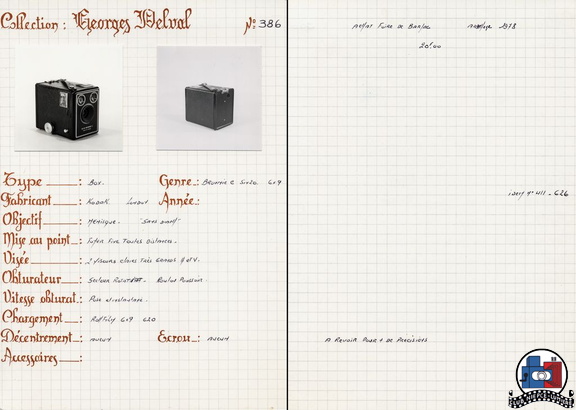 Collection : Georges Delval Nº 386
Type : Box. Genre : Brownie C Six20 6x9
Fabricant : Kodak London Année :
Objectif : Ménisque. "Sans
Mise au point : Foyer Fixe Toutes Distances.
Visée : 2 Viseurs clairs Très
Obturateur : Secteur Rotatif Bouton Poussoir.
Vitesse obturat. : Pose
Chargement : 6x9 620
Décentrement : aucun Ecrou : aucun
Accessoires :
Achat Foire de
20f00
N° 411 - 626
A Revoir Pour + de Précisions